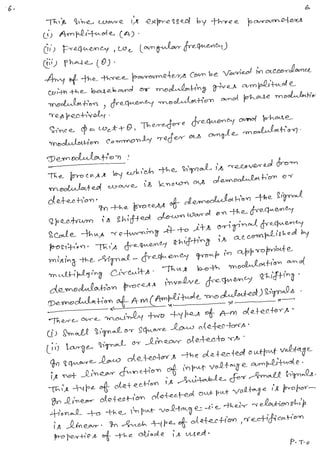 6.
6
This Sine wave is expressed by three parameters
(i) Amplitude (A).
(ii) Frequency, ωc (angular frequency)
(iii) Phase (θ).
Any of the three parameters can be varied in accordance
with the baseband or modulating gives amplitude
modulation, frequency modulation and phase modulation
respectively.
Since φ = ωct + θ, Therefore frequency and phase
modulation commonly refer as angle modulation.
Demodulation :
The process by which the signal is recovered from
modulated wave is known as demodulation or
detection.
In the process of demodulation the signal
spectrum is shifted downward on the frequency
scale thus returning it to its original frequency
position. This frequency shifting is accomplished by
mixing the signal-frequency group in appropriate
multiplying circuits. Thus both modulation and
demodulation process involve frequency shifting.
Demodulation of Am (Amplitude modulated) Signals.
There are mainly two types of A-m detectors.
(i) Small Signal or square law detectors.
(ii) Large Signal or linear detectors.
In square law detectors the detected output voltage
is not linear function of input voltage amplitude.
This type of detection is suitable for small signals.
In linear detection detected output voltage is propor-
tional to the input voltage i.e their relationship
is linear. In such type of detection, rectification
properties of the diode is used.
P.T.O